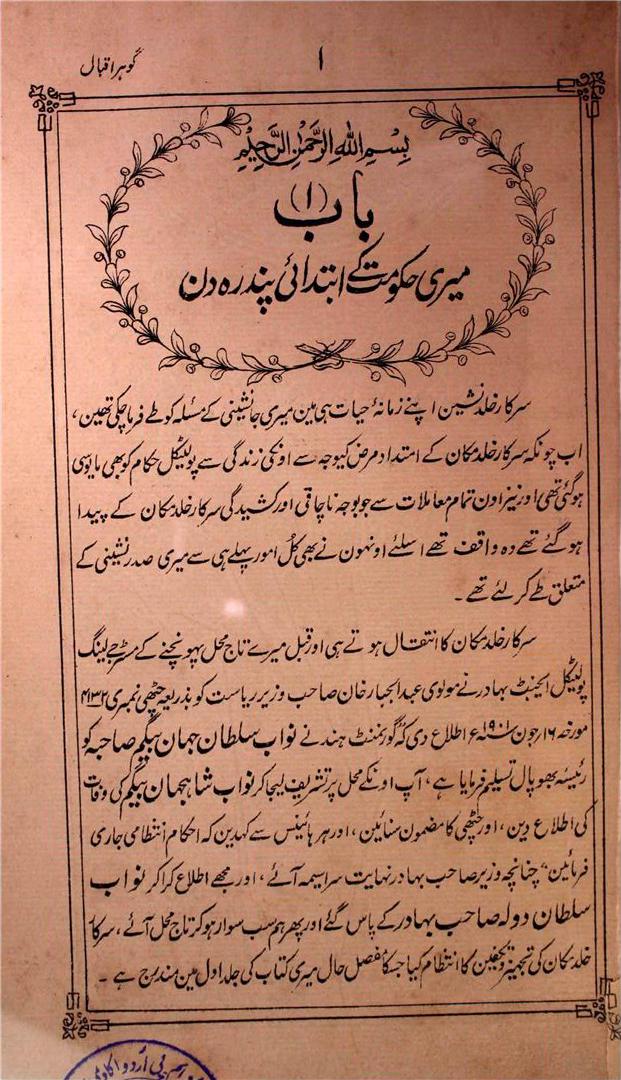 گوہر اقبال
۱
بِسْمِ اللهِ الرَّحْمٰنِ الرَّحِيْمِ
باب (۱)
میری حکومت کے ابتدائی پندرہ دن
سرکار خلد نشین اپنے زمانۂ حیات ہی مین میری جانشینی کے مسئلہ کو طے فرما چکی تھین،
اب چونکہ سرکار خلد مکان کے امتداد مرض کیوجہ سے اونکی زندگی سے پولٹیکل حکام کو بھی مایوسی
ہوگئی تھی اور نیز اون تمام معاملات سے جو بوجہ ناچاقی اور کشیدگی سرکار خلد مکان کے پیدا
ہو گئے تھے وہ واقف تھے اسلئے اونہون نے بھی کل امور پہلے ہی سے میری صدر نشینی کے
متعلق طے کر لئے تھے ۔
سرکار خلد مکان کا انتقال ہوتے ہی اور قبل میرے تاج محل پہونچنے کے مسٹر جے لینگ
پولٹیکل ایجنٹ بہادر نے مولوی عبدالجبار خان صاحب وزیر ریاست کو بذریعہ چٹھی نمبری ۴۱۳۲
مورخہ ۱۶ جون ۱۹۰۱ء اطلاع دی کہ گورنمنٹ ہند نے نواب سلطان جہان بیگم صاحبہ کو
رئیسۂ بھوپال تسلیم فرمایا ہے، آپ اونکے محل پر تشریف لیجا کر نواب شاہجہان بیگم کی وفات
کی اطلاع دین، اور چٹھی کا مضمون سنائین، اور ہر ہائینس سے کہدین کہ احکام انتظامی جاری
فرمائین“ چنانچہ وزیر صاحب بہادر نہایت سراسیمہ آئے، اور مجھے اطلاع کرا کر نواب
سلطان دولہ صاحب بہادر کے پاس گئے اور پھر ہم سب سوار ہو کر تاج محل آئے، سرکار
خلد مکان کی تجہیز و تکفین کا انتظام کیا جسکا مفصل حال میری کتاب کی جلد اول مین مندرج ہے ۔